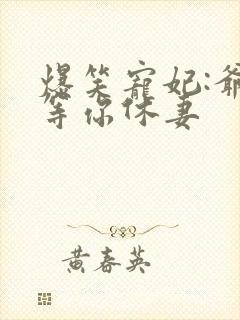 爆笑寵妃:爺
等你休妻
黄春英